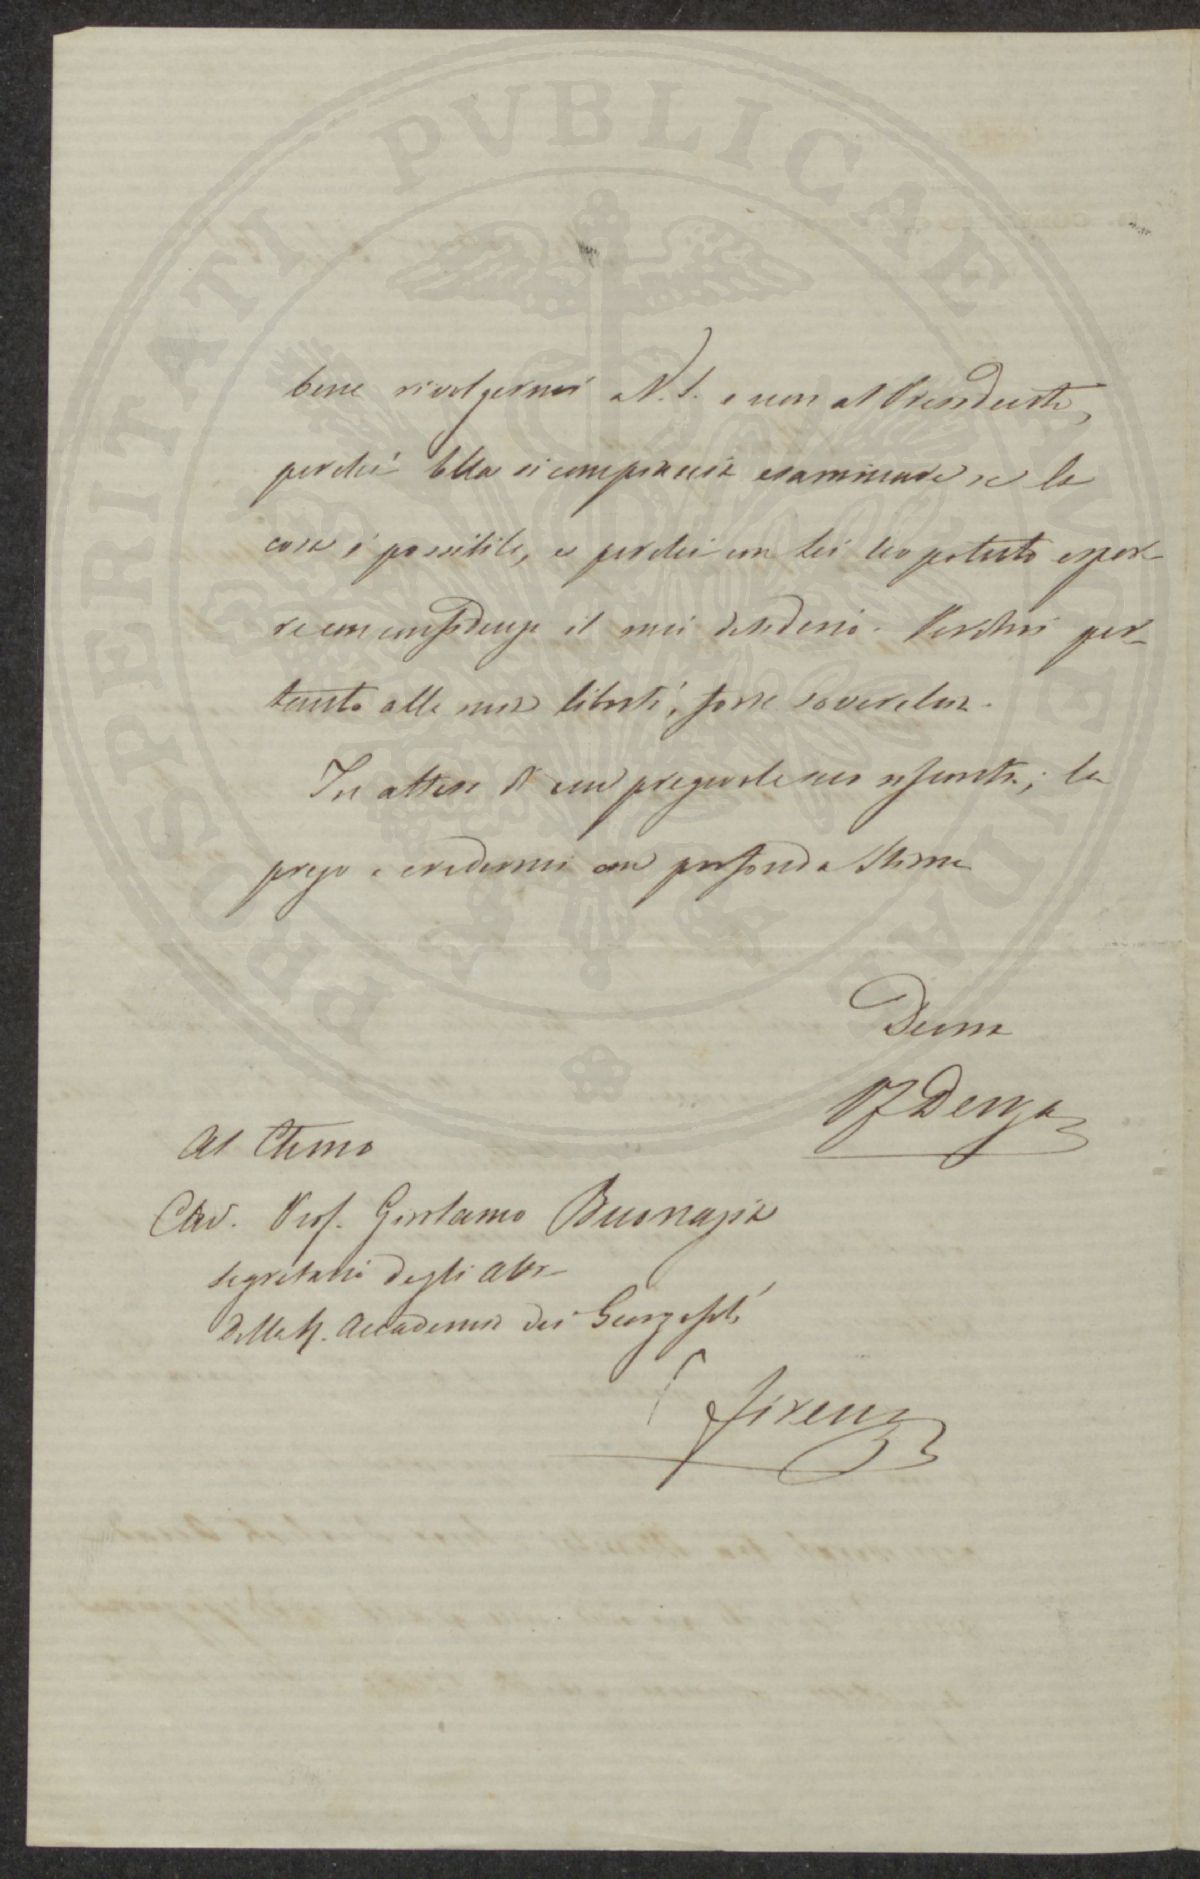 PROSPERITATI PUBLICAE AUGENDAE
bene rivolgermi a V. S. e non al Presidente,
perchè Ella si compiaccia esaminare se la
cosa è possibile, e perchè con Lei ho potuto espor-
re con confidenza il mio desiderio. Perdoni per-
tanto alla mia libertà, forse soverchia.
In attesa di un pregevole suo riscontro, la
prego a credermi con profonda stima
Devmo
P F Denza
Al Chmo
Cav. Prof. Girolamo Buonazia
Segretario degli Atti
della R. Accademia dei Georgofili
Firenze